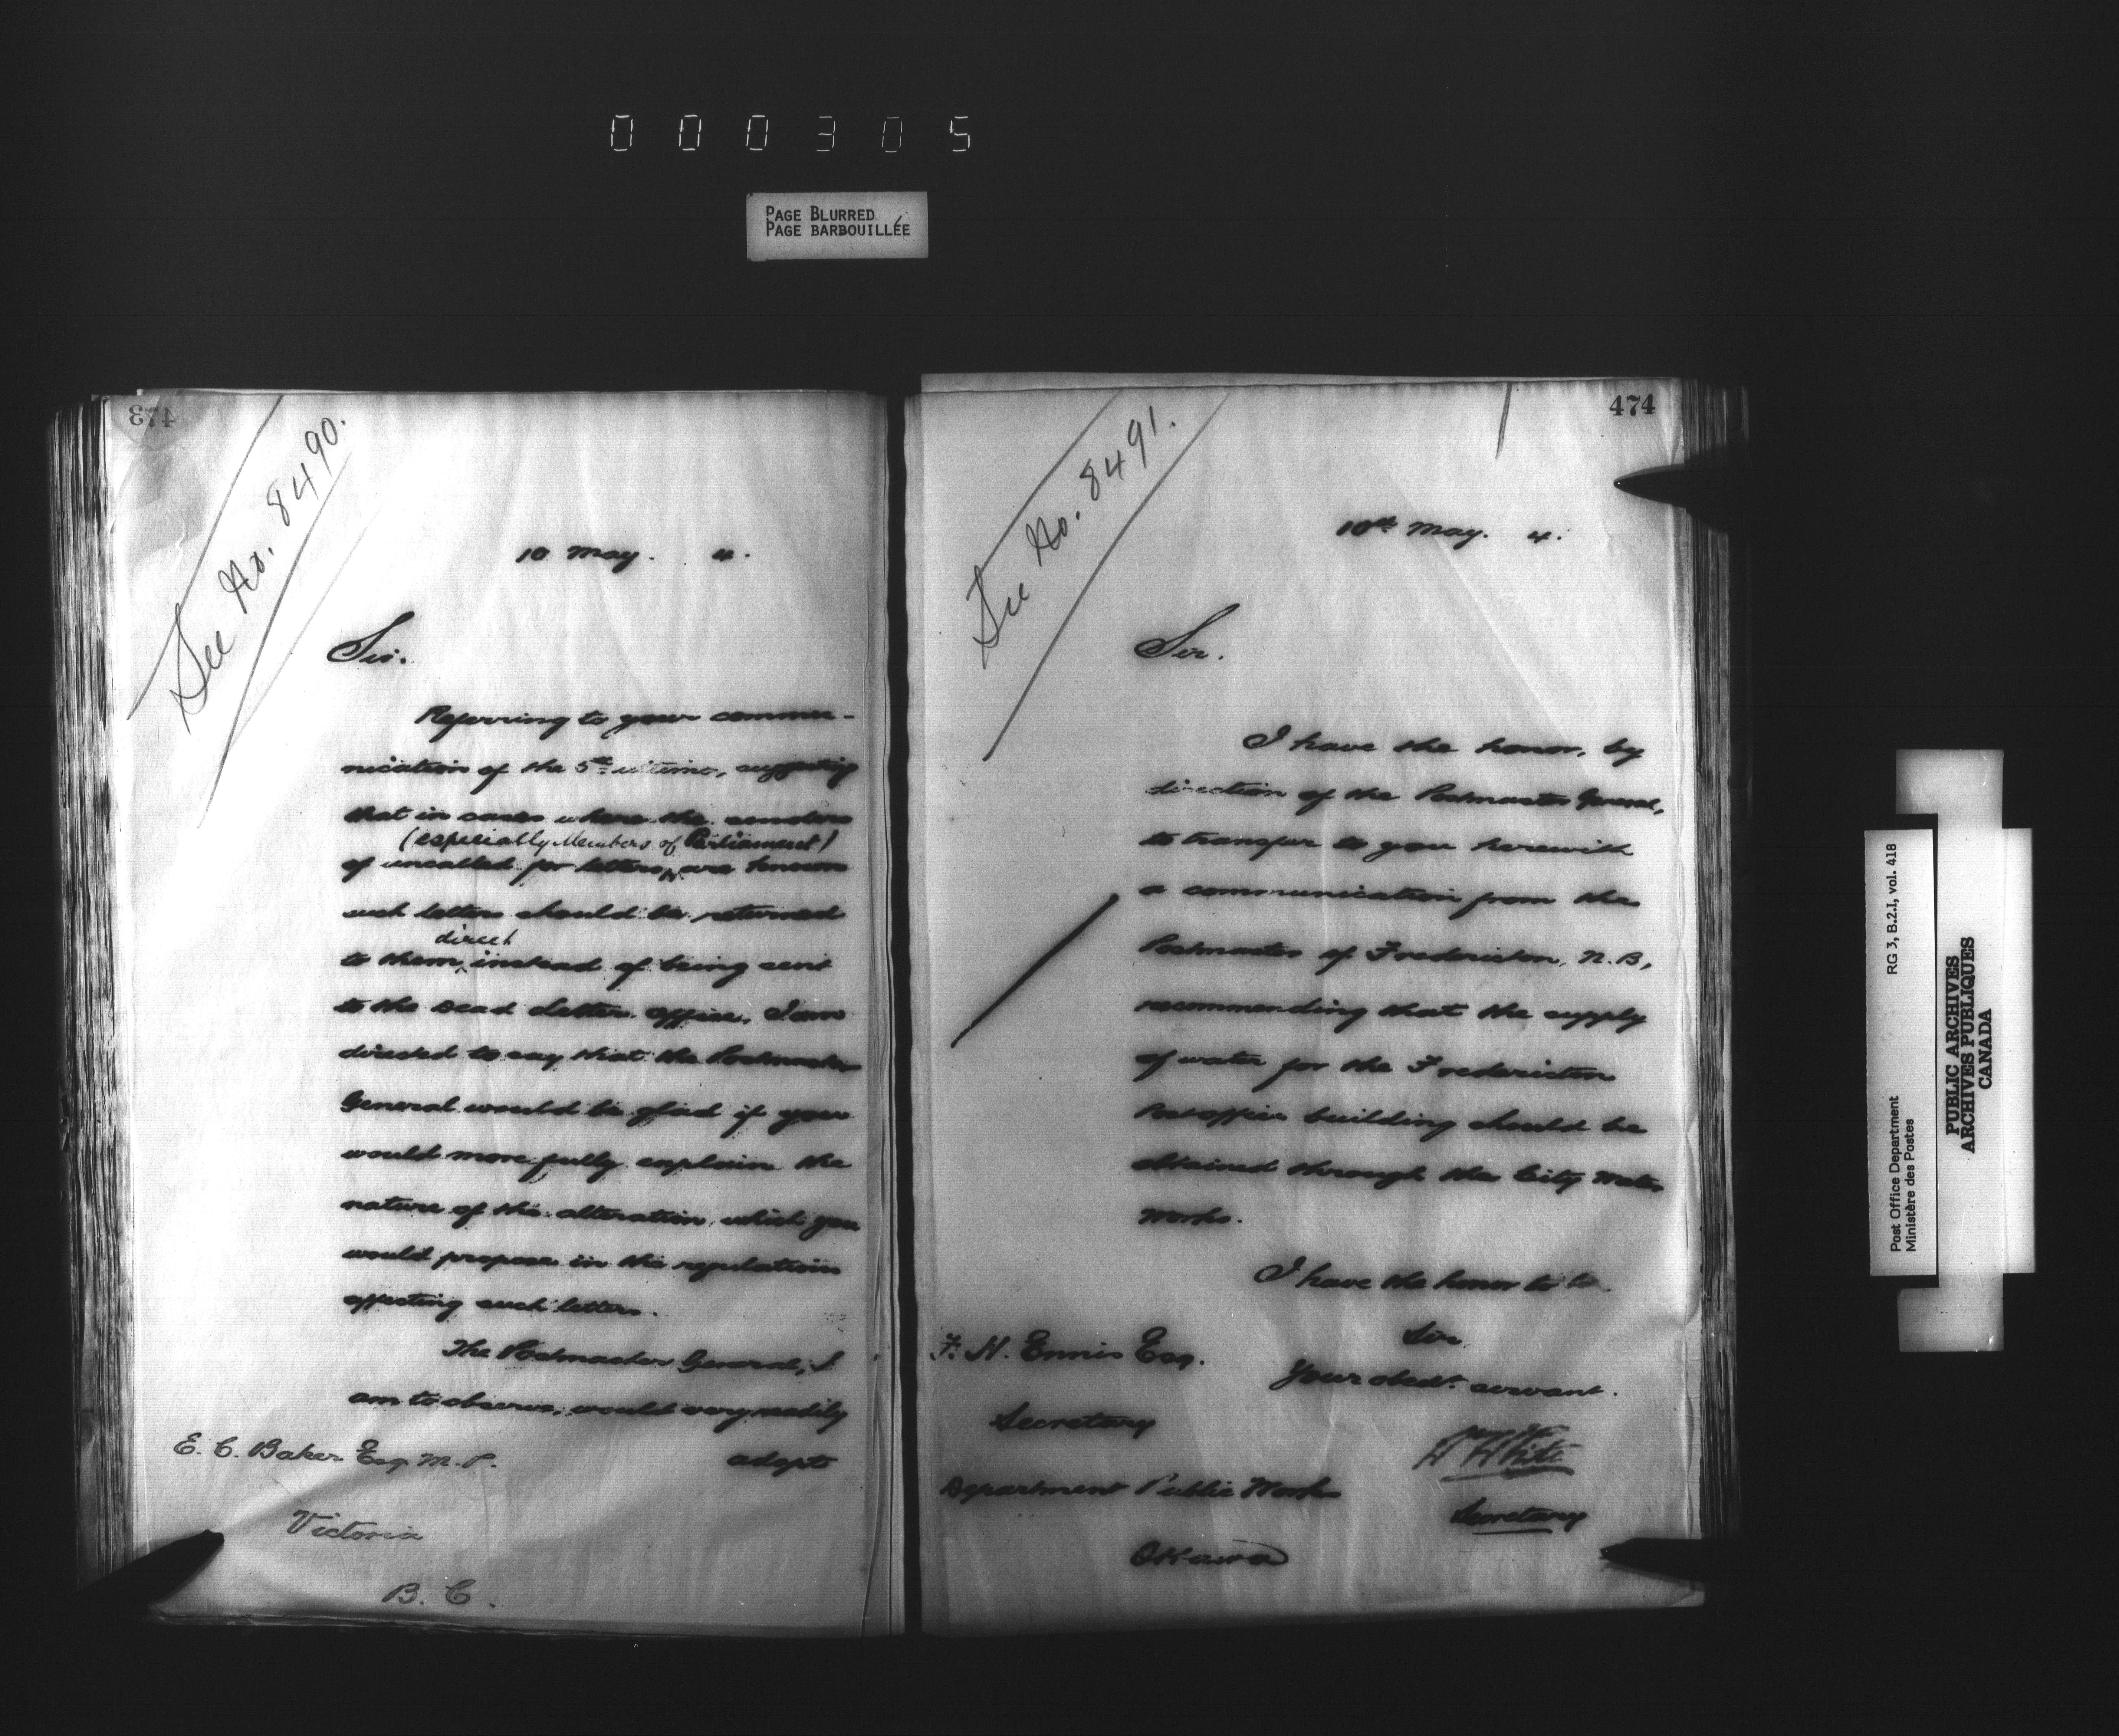 000305
PAGE BLURRED
PAGE BARBOUILLÉE
473
See No. 8490.
10 May. 4.
Sir.
Referring to your commu-
nication of the 5th ultimo, suggesting
that in cases where the senders
(especially Members of Parliament)
of uncalled for letters, are known
such letters should be returned
direct
to them instead of being sent
to the Dead Letter Office, I am
directed to say that the Postmaster
General would be glad if you
would more fully explain the
nature of the alteration which you
would propose in the regulations
affecting such letters.
The Postmaster General, I
am to observe, would very readily
adopt
E. C. Baker Esq. M. P.
Victoria
B. C.
474
See No. 8491.
10th May. 4.
Sir.
I have the honor, by
direction of the Postmaster General,
to transfer to you herewith
a communication from the
Postmaster of Fredericton, N.B,
recommending that the supply
of water for the Fredericton
Post office building should be
obtained through the City Water
Works.
I have the honor to be.
Sir
Your obedt. servant.
White
Secretary
F. H. Ennis Esq.
Secretary
Department Public Works
Ottawa
Post Office Department
Ministère des Postes
RG 3, B.2.I, vol. 418
PUBLIC ARCHIVES
ARCHIVES PUBLIQUES
CANADA